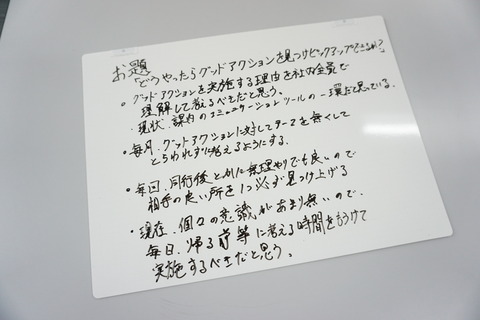 お題
「どうやったらグッドアクションを見つけピックアップできるか?」
・グッドアクションを実施する理由を社内全員で
理解して考えるべきだと思う。
現状、課内のコミュニケーションツールの一環だと思っている。
・毎月、グッドアクションに対してテーマを無くして
とらわれずに考えるようにする。
・毎回、同行後とかに無理やりでも良いので
相手の良い所を1つ必ず見つけ上げる
・現在、個々の意識があまり無いので、
毎日、帰る前等に考える時間をもうけて
実施するべきだと思う。